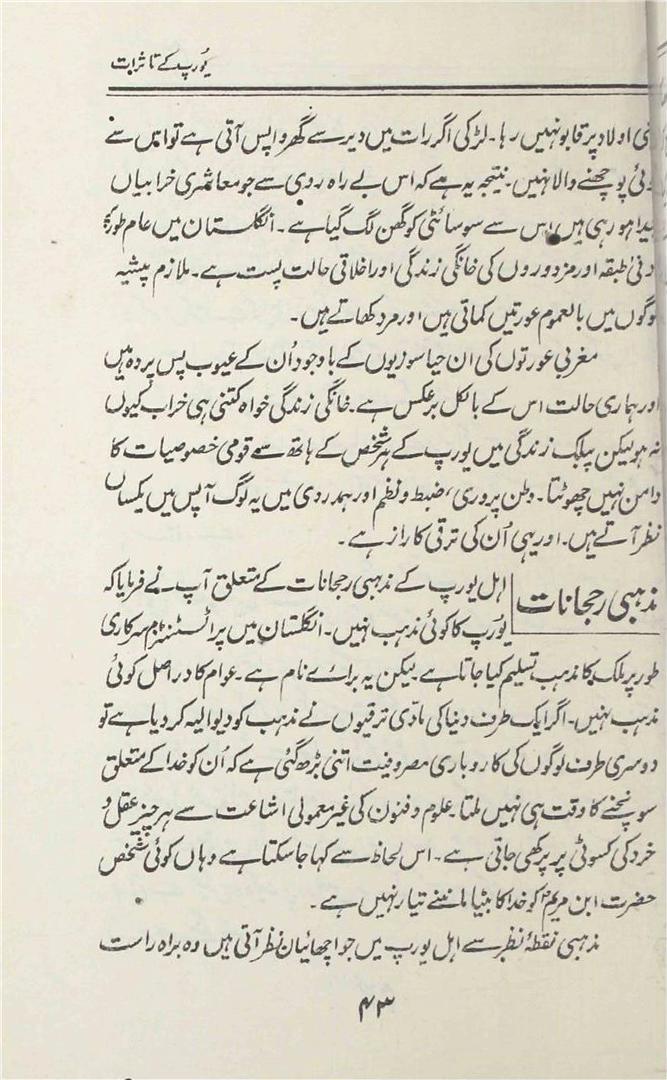 یورپ کے تاثرات
اولاد پر قابو نہیں رہا۔ لڑکی اگر رات میں دیر سے گھر واپس آتی ہے تو اس سے
پوچھنے والا نہیں۔ نتیجہ یہ ہے کہ اس بے راہ روی سے جو معاشری خرابیاں
پیدا ہو رہی ہیں اس سے سوسائٹی کو گھن لگ گیا ہے۔ انگلستان میں عام طور پر
ادنیٰ طبقہ اور مزدوروں کی خانگی زندگی اور اخلاقی حالت پست ہے۔ ملازم پیشہ
لوگوں میں بالعموم عورتیں کماتی ہیں اور مرد کھاتے ہیں۔
مغربی عورتوں کی ان حیا سوزیوں کے باوجود اُن کے عیوب پس پردہ ہیں
اور ہماری حالت اس کے بالکل برعکس ہے۔ خانگی زندگی خواہ کتنی ہی خراب کیوں
نہ ہو لیکن پبلک زندگی میں یورپ کے ہر شخص کے ہاتھ سے قومی خصوصیات کا
دامن نہیں چھوٹتا۔ وطن پروری، ضبط و نظم اور ہمدردی میں یہ لوگ آپس میں یکساں
نظر آتے ہیں۔ اور یہی اُن کی ترقی کا راز ہے۔
مذہبی رجحانات
اہل یورپ کے مذہبی رجحانات کے متعلق آپ نے فرمایا کہ
یورپ کا کوئی مذہب نہیں۔ انگلستان میں پراٹسٹنٹزم سرکاری
طور پر ملک کا مذہب تسلیم کیا جاتا ہے لیکن یہ برائے نام ہے۔ عوام کا در اصل کوئی
مذہب نہیں۔ اگر ایک طرف دنیا کی مادّی ترقیوں نے مذہب کو دیوالیہ کر دیا ہے تو
دوسری طرف لوگوں کی کاروباری مصروفیت اتنی بڑھ گئی ہے کہ اُن کو خدا کے متعلق
سوچنے کا وقت ہی نہیں ملتا۔ علوم و فنون کی غیر معمولی اشاعت سے ہر چیز عقل و
خرد کی کسوٹی پر پرکھی جاتی ہے۔ اس لحاظ سے کہا جا سکتا ہے وہاں کوئی شخص
حضرت ابن مریمؑ کو خدا کا بیٹا ماننے تیار نہیں ہے۔
مذہبی نقطۂ نظر سے اہل یورپ میں جو اچھائیاں نظر آتی ہیں وہ براہ راست
۴۳